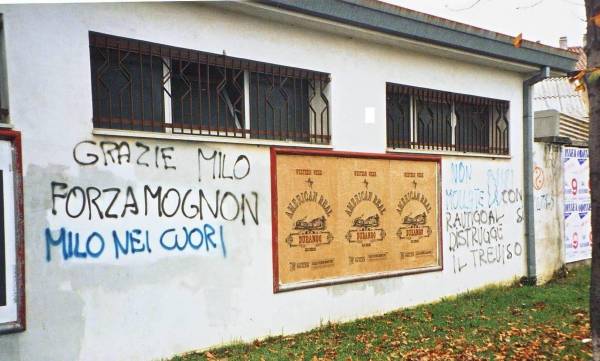 GRAZIE MILO
FORZA MOGNON
MILO NEI CUORI
WESTERN WEAR
AMERICAN REAL
DURANGO
WESTERN WEAR
AMERICAN REAL
DURANGO
WESTERN WEAR
AMERICAN REAL
DURANGO
NON
MOLLATE
CON
RAUTI GOAL SI
DISTRUGGE
IL TREVISO